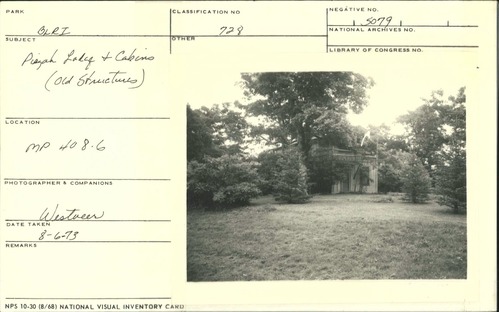 PARK
BLRI
CLASSIFICATION NO
729
NEGATIVE NO.
5079
SUBJECT
OTHER
NATIONAL ARCHIVES NO.
LIBRARY OF CONGRESS NO.
Pisgah Lodge + Cabins
(Old Structures)
LOCATION
MP 408.6
PHOTOGRAPHER & COMPANIONS
Westveer
DATE TAKEN
8-6-73
REMARKS
NPS 10-30 (8/68) NATIONAL VISUAL INVENTORY CARD